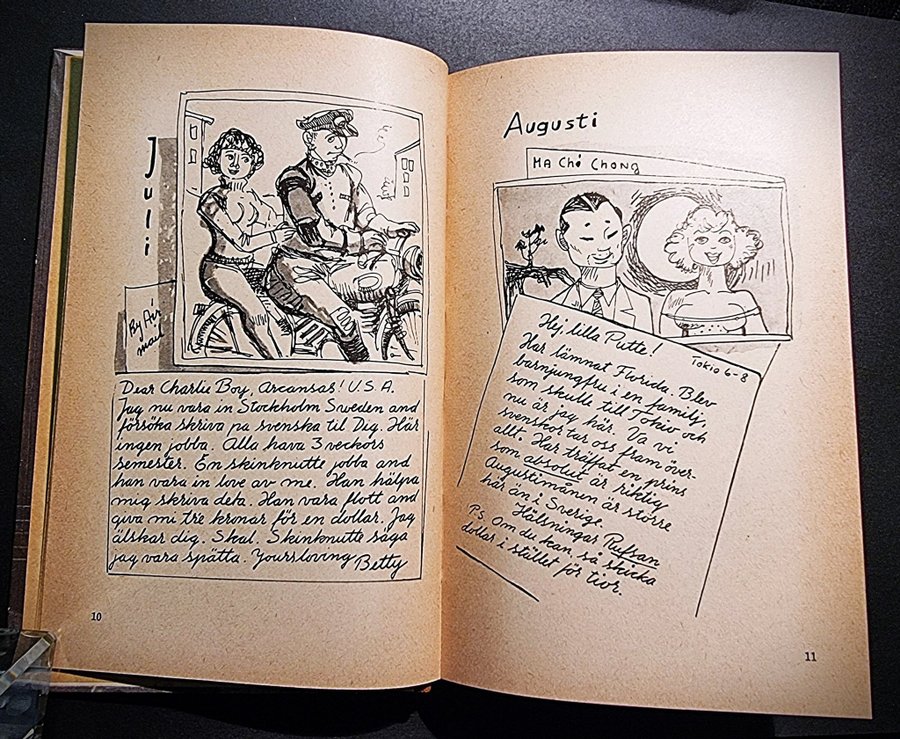 Juli
By Air
mail
Dear Charlie Boy, Arcansas! U.S.A.
Jag nu vara in Stockholm Sweden and
försöka skriva pa svenska til Dig. Här
ingen jobba. Alla hava 3 veckors
semester. En skinknutte jobba and
han vara in love av me. Han hälpa
mig skriva deta. Han vara flott and
giva mi tre kronar för en dollar. Jag
älskar dig. Skal. Skinknutte säga
jag vara spätta. Yoursloving
Betty
10
Augusti
Ma Chi Chong
Hej lilla Putte!
Tokio 6-8
Har lämnat Florida. Blev
barnjungfru i en familj,
som skulle till Tokio och
nu är jag här. Va vi
svenskor tar oss fram över-
allt. Har träffat en prins
som absolut är riktig
Augustimånen är större
här än i Sverige.
Hälsningar Ruffsan
Ps om du kan, så skicka
dollar i stället för tior.
11